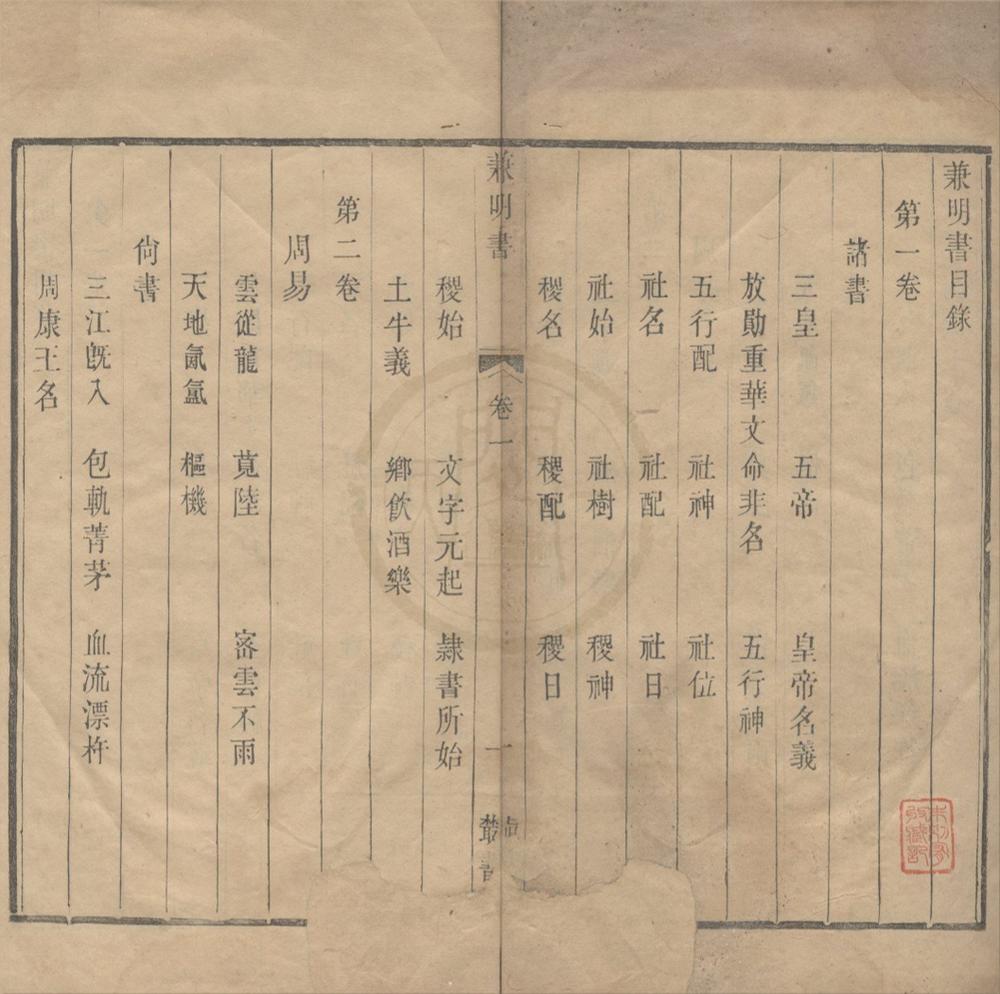 兼明書目錄
第一卷
諸書
三皇 五帝 皇帝名義
放勛重華文命非名 五行神
五行配 社神 社位
社名 社配 社日
社始 社樹 稷神
稷名 稷配 稷日
兼明書 卷一 一 叢書
稷始 文字元起 隸書所始
土牛義 鄉飲酒樂
第二卷
周易
雲從龍 莧陸 密雲不雨
天地氤氳 樞機
尙書
三江旣入 包軌菁茅 血流漂杵
周康王名